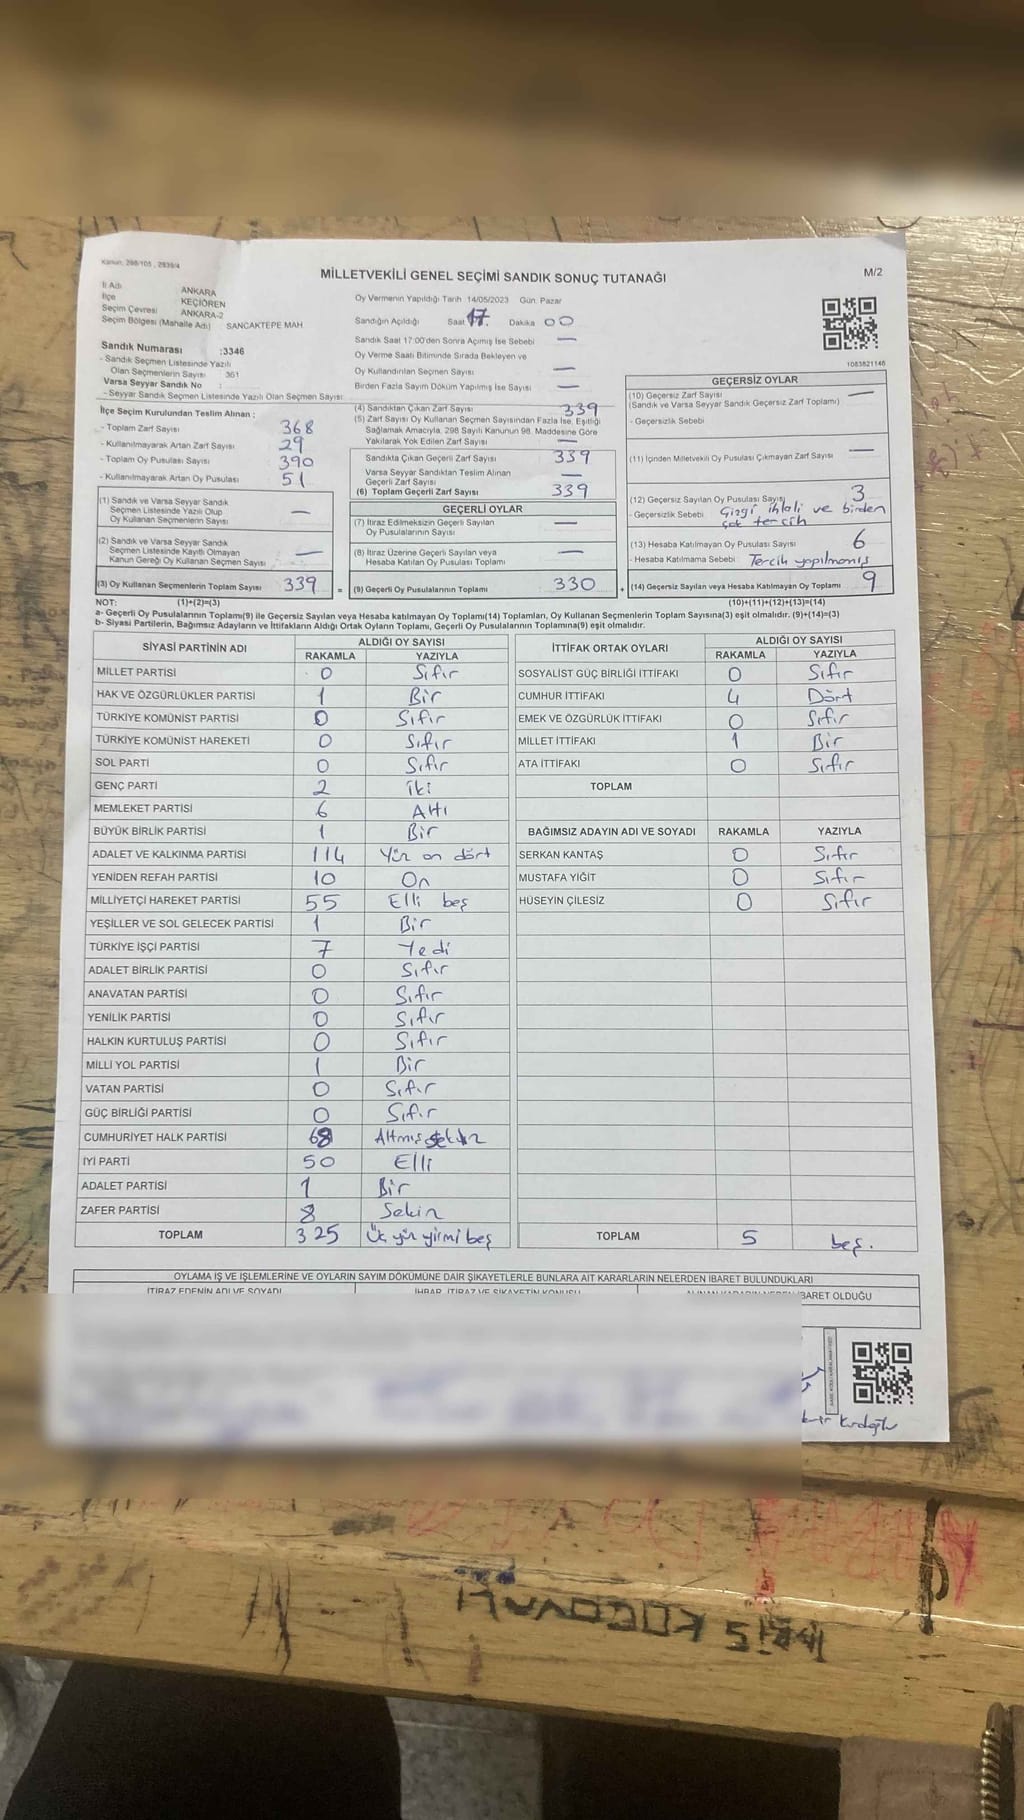 Kanun: 298/105 , 2839/4
MİLLETVEKİLİ GENEL SEÇİMİ SANDIK SONUÇ TUTANAĞI
M/2
İl Adı ANKARA
İlçe KEÇİÖREN
Seçim Çevresi ANKARA-2
Seçim Bölgesi (Mahalle Adı) SANCAKTEPE MAH.
Oy Vermenin Yapıldığı Tarih 14/05/2023 Gün: Pazar
Sandığın Açıldığı Saat 17. Dakika 00
Sandık Saat 17:00'den Sonra Açılmış İse Sebebi —
Oy Verme Saati Bitiminde Sırada Bekleyen ve
Oy Kullandırılan Seçmen Sayısı —
Birden Fazla Sayım Döküm Yapılmış İse Sayısı —
1083821146
Sandık Numarası :3346
- Sandık Seçmen Listesinde Yazılı
Olan Seçmenlerin Sayısı 361
Varsa Seyyar Sandık No :
- Seyyar Sandık Seçmen Listesinde Yazılı Olan Seçmen Sayısı:
İlçe Seçim Kurulundan Teslim Alınan :
- Toplam Zarf Sayısı 368
- Kullanılmayarak Artan Zarf Sayısı 29
- Toplam Oy Pusulası Sayısı 390
- Kullanılmayarak Artan Oy Pusulası 51
(1) Sandık ve Varsa Seyyar Sandık
Seçmen Listesinde Yazılı Olup
Oy Kullanan Seçmenlerin Sayısı —
(2) Sandık ve Varsa Seyyar Sandık
Seçmen Listesinde Kayıtlı Olmayan
Kanun Gereği Oy Kullanan Seçmen Sayısı —
(3) Oy Kullanan Seçmenlerin Toplam Sayısı 339 =
(4) Sandıktan Çıkan Zarf Sayısı 339
(5) Zarf Sayısı Oy Kullanan Seçmen Sayısından Fazla İse, Eşitliği
Sağlamak Amacıyla, 298 Sayılı Kanunun 98. Maddesine Göre
Yakılarak Yok Edilen Zarf Sayısı —
Sandıkta Çıkan Geçerli Zarf Sayısı 339
Varsa Seyyar Sandıktan Teslim Alınan
Geçerli Zarf Sayısı —
(6) Toplam Geçerli Zarf Sayısı 339
GEÇERLİ OYLAR
(7) İtiraz Edilmeksizin Geçerli Sayılan
Oy Pusulalarının Sayısı —
(8) İtiraz Üzerine Geçerli Sayılan veya
Hesaba Katılan Oy Pusulası Toplamı —
(9) Geçerli Oy Pusulalarının Toplamı 330 +
GEÇERSİZ OYLAR
(10) Geçersiz Zarf Sayısı —
(Sandık ve Varsa Seyyar Sandık Geçersiz Zarf Toplamı)
- Geçersizlik Sebebi
(11) İçinden Milletvekili Oy Pusulası Çıkmayan Zarf Sayısı —
(12) Geçersiz Sayılan Oy Pusulası Sayısı 3
- Geçersizlik Sebebi Çizgi ihlali ve birden
çok tercih
(13) Hesaba Katılmayan Oy Pusulası Sayısı 6
- Hesaba Katılmama Sebebi: Tercih yapılmamış
(14) Geçersiz Sayılan veya Hesaba Katılmayan Oy Toplamı 9
NOT: (1)+(2)=(3) (10)+(11)+(12)+(13)=(14)
a- Geçerli Oy Pusulalarının Toplamı(9) ile Geçersiz Sayılan veya Hesaba katılmayan Oy Toplamı(14) Toplamları, Oy Kullanan Seçmenlerin Toplam Sayısına(3) eşit olmalıdır. (9)+(14)=(3)
b- Siyasi Partilerin, Bağımsız Adayların ve İttifakların Aldığı Ortak Oyların Toplamı, Geçerli Oy Pusulalarının Toplamına(9) eşit olmalıdır.
SİYASİ PARTİNİN ADI ALDIĞI OY SAYISI
RAKAMLA YAZIYLA
MİLLET PARTİSİ 0 Sıfır
HAK VE ÖZGÜRLÜKLER PARTİSİ 1 Bir
TÜRKİYE KOMÜNİST PARTİSİ 0 Sıfır
TÜRKİYE KOMÜNİST HAREKETİ 0 Sıfır
SOL PARTİ 0 Sıfır
GENÇ PARTİ 2 iki
MEMLEKET PARTİSİ 6 Altı
BÜYÜK BİRLİK PARTİSİ 1 Bir
ADALET VE KALKINMA PARTİSİ 114 Yüz on dört
YENİDEN REFAH PARTİSİ 10 On
MİLLİYETÇİ HAREKET PARTİSİ 55 Elli beş
YEŞİLLER VE SOL GELECEK PARTİSİ 1 Bir
TÜRKİYE İŞÇİ PARTİSİ 7 Yedi
ADALET BİRLİK PARTİSİ 0 Sıfır
ANAVATAN PARTİSİ 0 Sıfır
YENİLİK PARTİSİ 0 Sıfır
HALKIN KURTULUŞ PARTİSİ 0 Sıfır
MİLLİ YOL PARTİSİ 1 Bir
VATAN PARTİSİ 0 Sıfır
GÜÇ BİRLİĞİ PARTİSİ 0 Sıfır
CUMHURİYET HALK PARTİSİ 68 Altmış sekiz
İYİ PARTİ 50 Elli
ADALET PARTİSİ 1 Bir
ZAFER PARTİSİ 8 Sekiz
TOPLAM 325 Üç yüz yirmi beş
İTTİFAK ORTAK OYLARI ALDIĞI OY SAYISI
RAKAMLA YAZIYLA
SOSYALİST GÜÇ BİRLİĞİ İTTİFAKI 0 Sıfır
CUMHUR İTTİFAKI 4 Dört
EMEK VE ÖZGÜRLÜK İTTİFAKI 0 Sıfır
MİLLET İTTİFAKI 1 Bir
ATA İTTİFAKI 0 Sıfır
TOPLAM
BAĞIMSIZ ADAYIN ADI VE SOYADI RAKAMLA YAZIYLA
SERKAN KANTAŞ 0 Sıfır
MUSTAFA YİĞİT 0 Sıfır
HÜSEYİN ÇİLESİZ 0 Sıfır
TOPLAM 5 beş.
OYLAMA İŞ VE İŞLEMLERİNE VE OYLARIN SAYIM DÖKÜMÜNE DAİR ŞİKAYETLERLE BUNLARA AİT KARARLARIN NELERDEN İBARET BULUNDUKLARI
İTİRAZ EDENİN ADI VE SOYADI İHBAR, İTİRAZ VE ŞİKAYETİN KONUSU BARET OLDUĞU